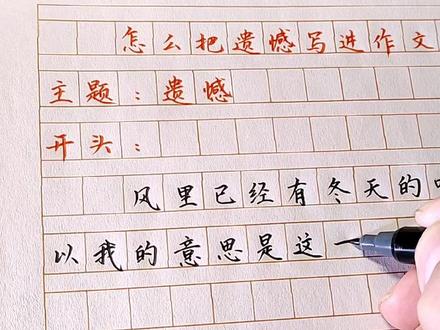 怎么把遗憾写进作文
主题:遗憾
开头:
风里已经有冬天的
以我的意思是这一